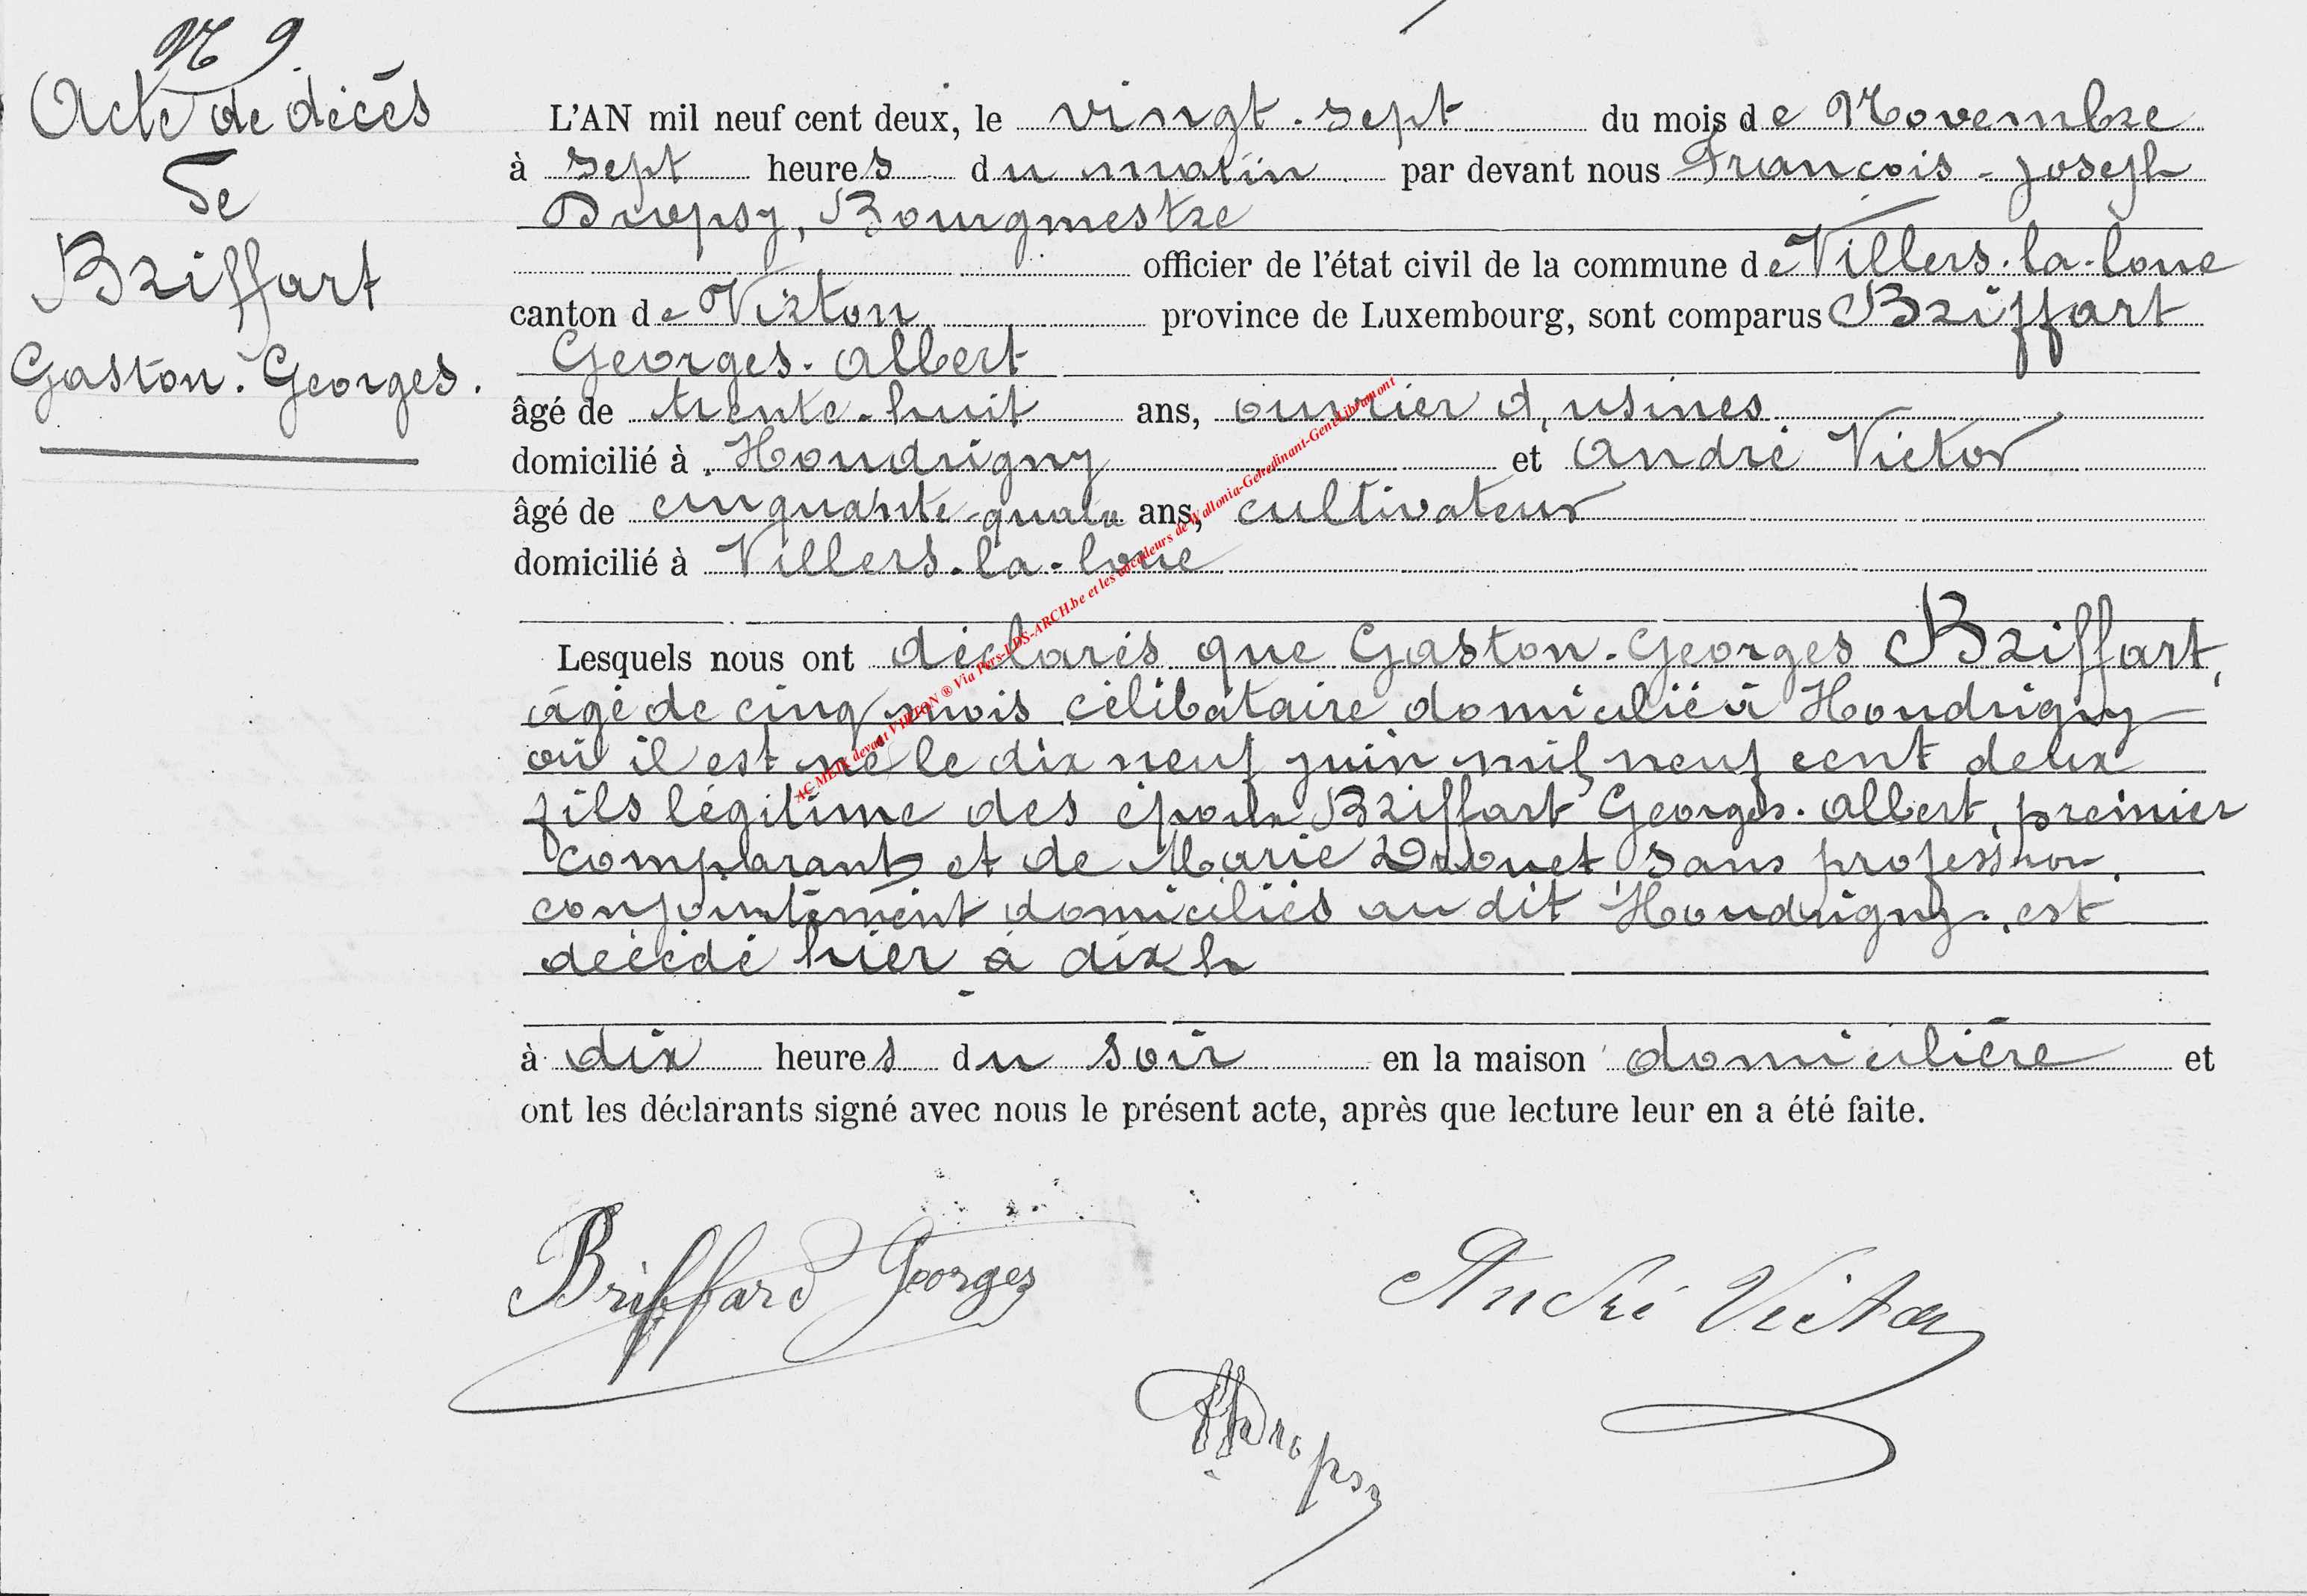 N 9
Acte de décès
De
Briffart
Gaston. Georges.
L'AN mil neuf cent deux, le vingt-sept du mois de Novembre
à sept heures du matin par devant nous François-Joseph
Dropsy, Bourgmestre
officier de l'état civil de la commune de Villers-la-loue
canton de Virton province de Luxembourg, sont comparus Briffart
Georges-Albert
âgé de trente-huit ans, ouvrier d'usines
domicilié à Houdrigny et André Victor
âgé de cinquante-quatre ans, cultivateur
domicilié à Villers-la-loue
Lesquels nous ont déclarés que Gaston-Georges Briffart,
âgé de cinq mois célibataire domicilié à Houdrigny
où il est né le dix neuf juin mil neuf cent deux
fils légitime des époux Briffart Georges-Albert, premier
comparant et de Marie Drouet sans profession
conjointement domiciliés audit Houdrigny, est
décédé hier à dix h
à dix heures du soir en la maison domicilière et
ont les déclarants signé avec nous le présent acte, après que lecture leur en a été faite.
Briffard Georges
André Victor
Dropsy
AC MEIX devant VIRTON ® Via Pers-LDS-ARCH.be et les encodeurs de Wallonia-Genedinant-GeneLibramont